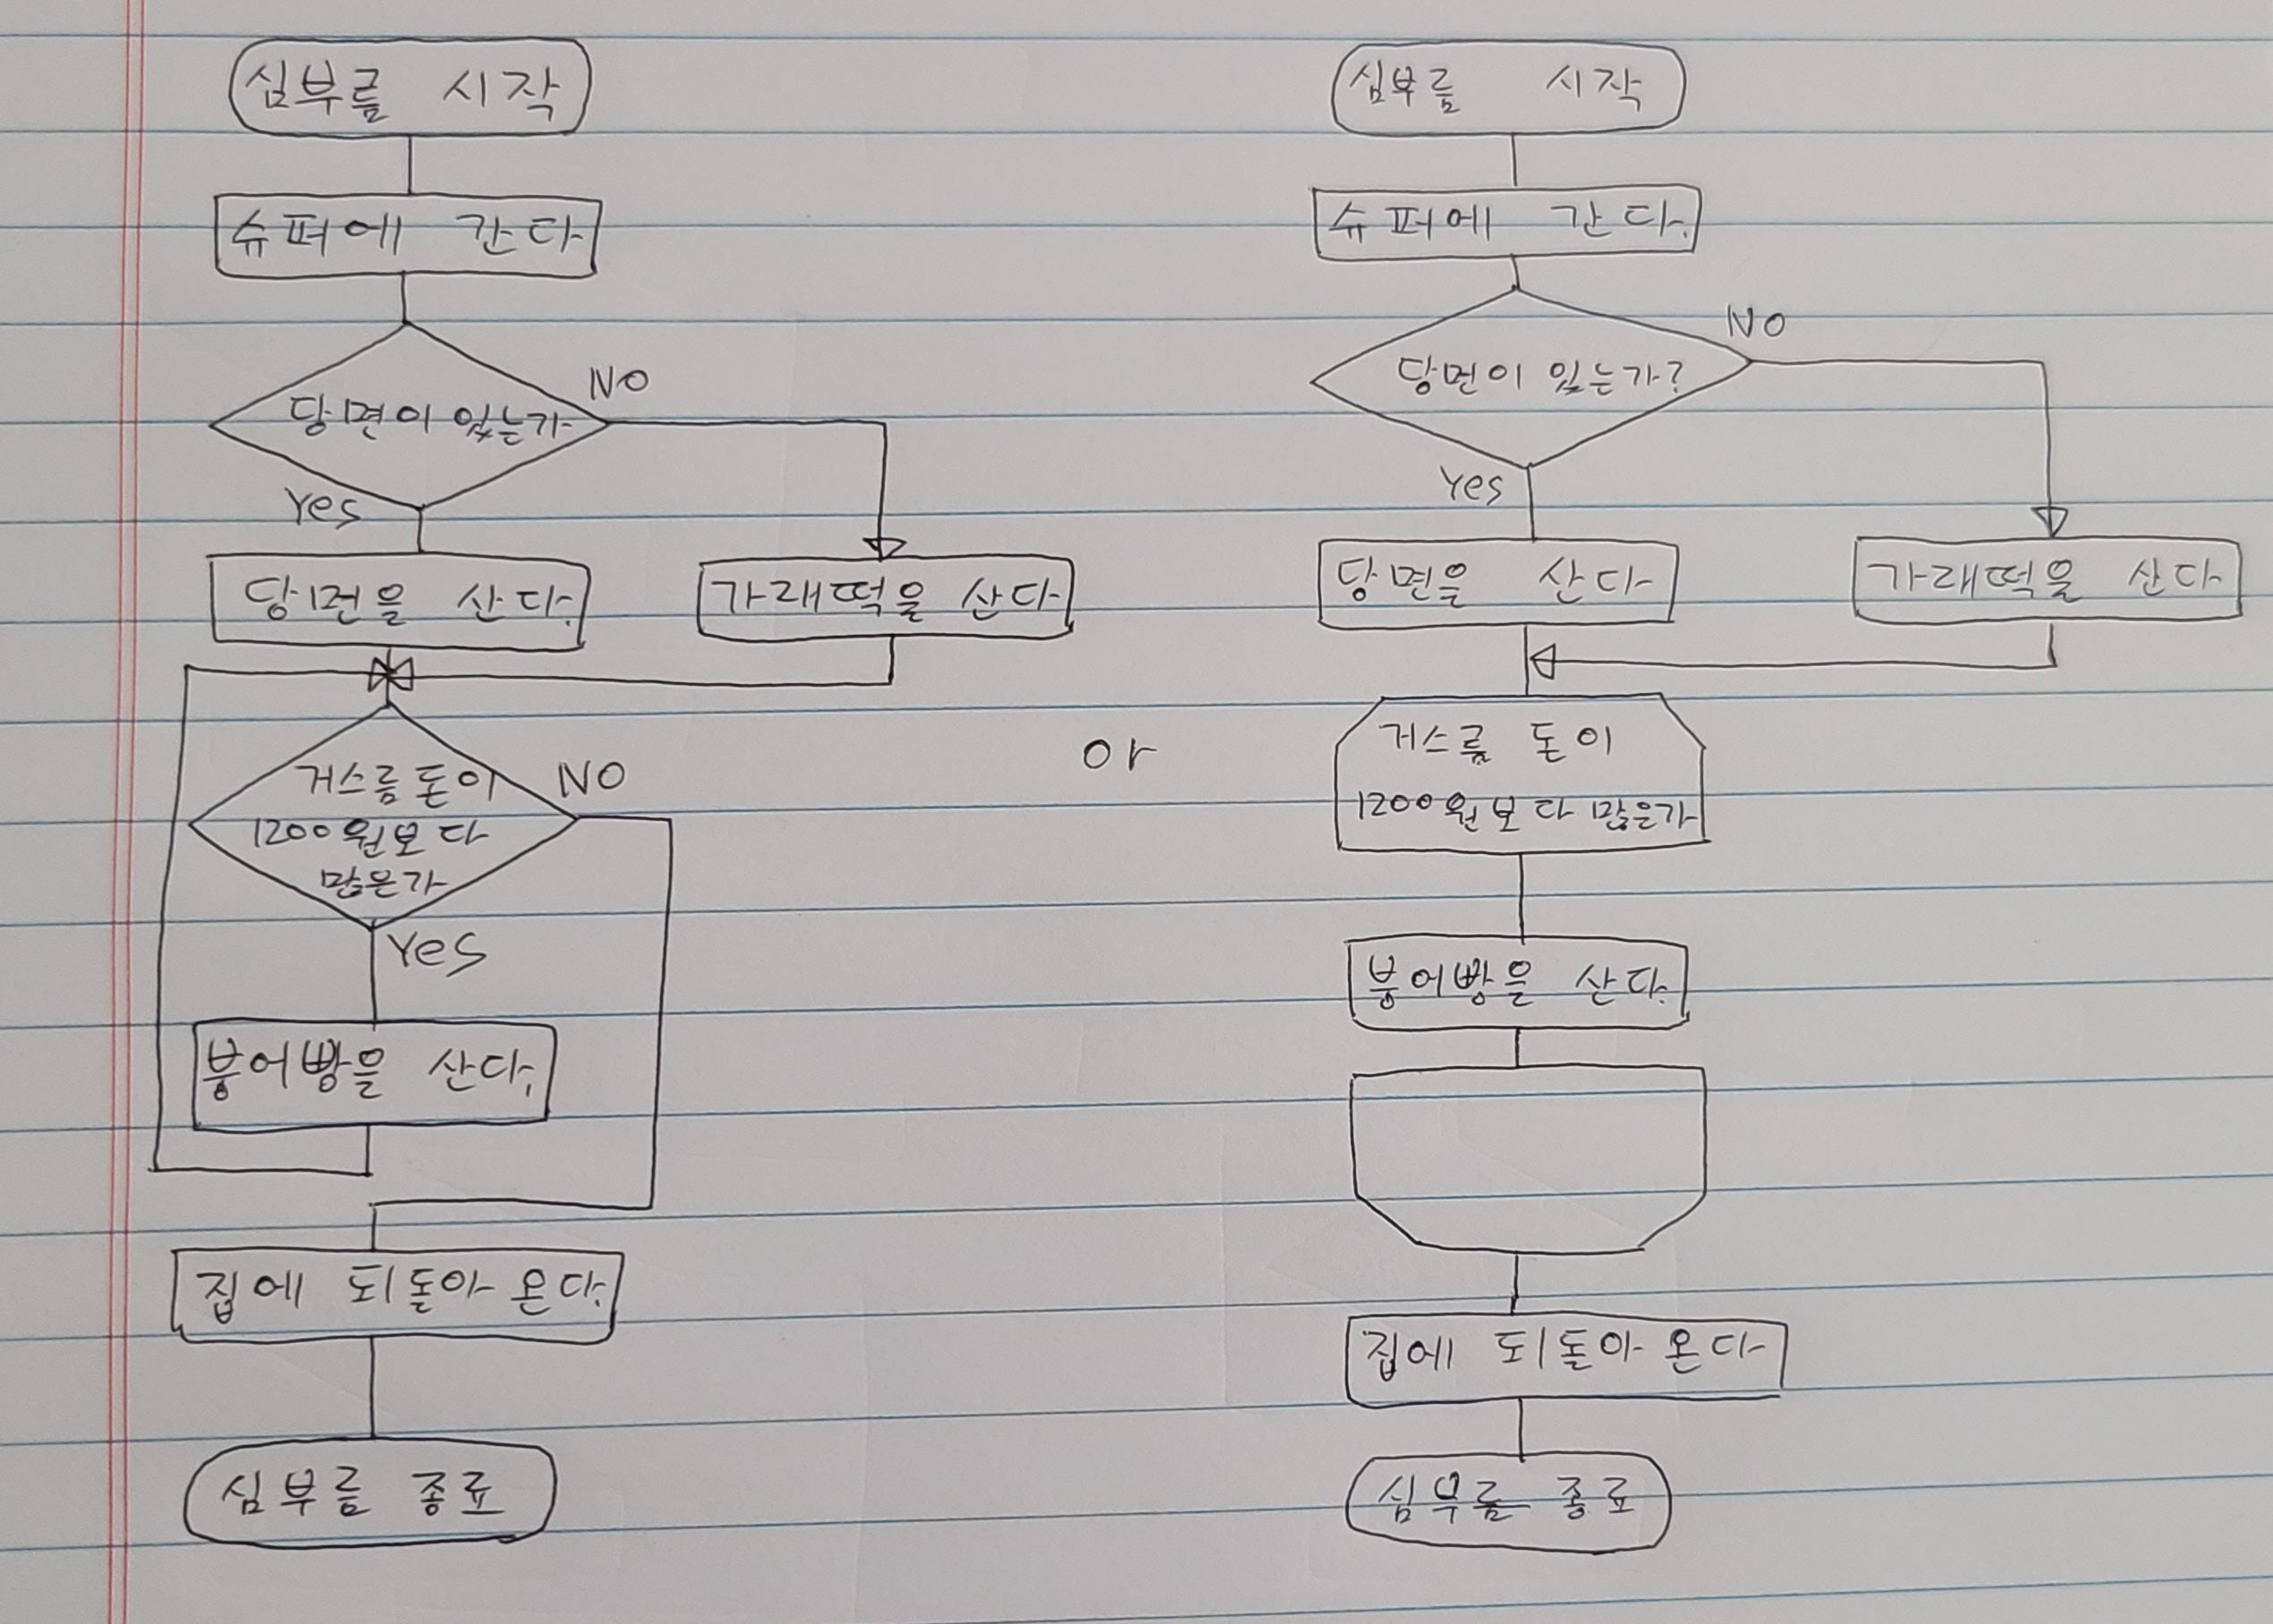 심부름 시작
슈퍼에 간다
당면이 있는가
NO
Yes
당면을 산다.
가래떡을 산다
거스름 돈이
1200원보다
많은가
NO
Yes
붕어빵을 산다.
집에 되돌아 온다.
심부름 종료
or
심부름 시작
슈퍼에 간다.
당면이 있는가?
NO
Yes
당면을 산다
가래떡을 산다
거스름 돈이
1200원보다 많은가
붕어빵을 산다.
집에 되돌아 온다
심부름 종료